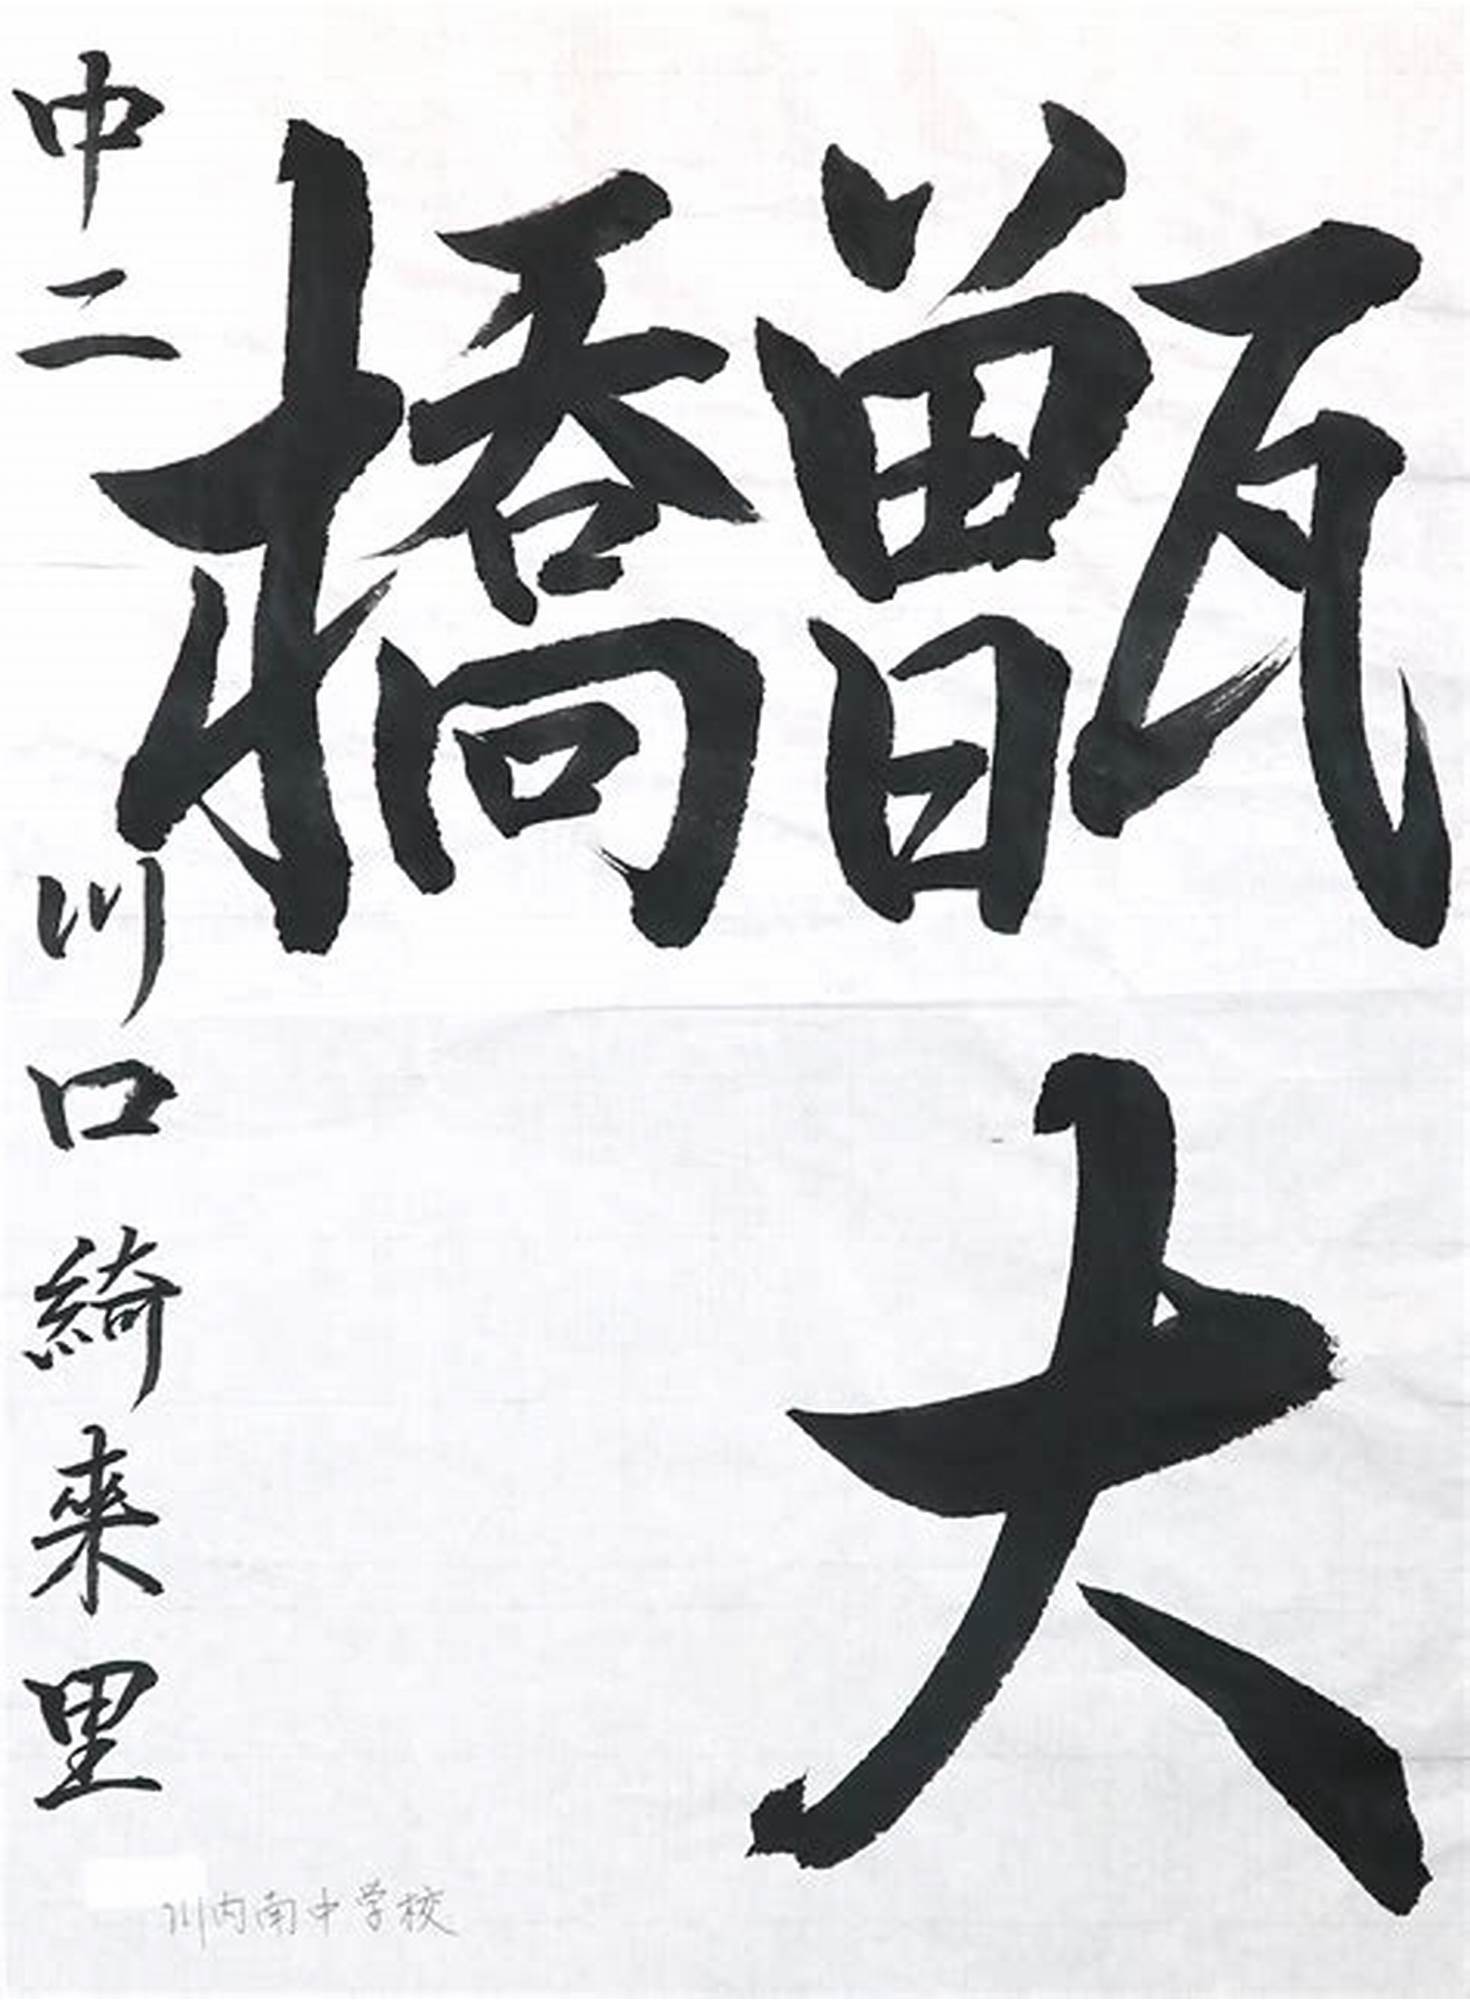 甑大
橋
中二 川口綺来里
川内南中学校